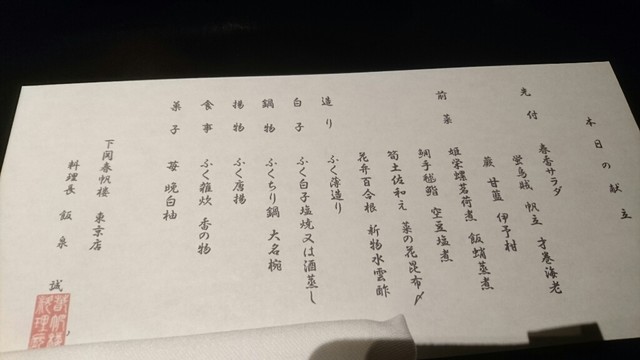 本日の献立
先付 春香サラダ
蛍烏賊 帆立 才巻海老
蕨 甘藍 伊予柑
前菜 姫栄螺茗荷煮 飯蛸蒸煮
鯛手毬鮨 空豆塩煮
筍土佐和え 菜の花昆布〆
花弁百合根 新物水雲酢
造り ふく薄造り
白子 ふく白子塩焼又は酒蒸し
鍋物 ふくちり鍋 大名椀
揚物 ふく唐揚
食事 ふく雑炊 香の物
菓子 苺 晩白柚
下関春帆楼 東京店
料理長 飯泉 誠